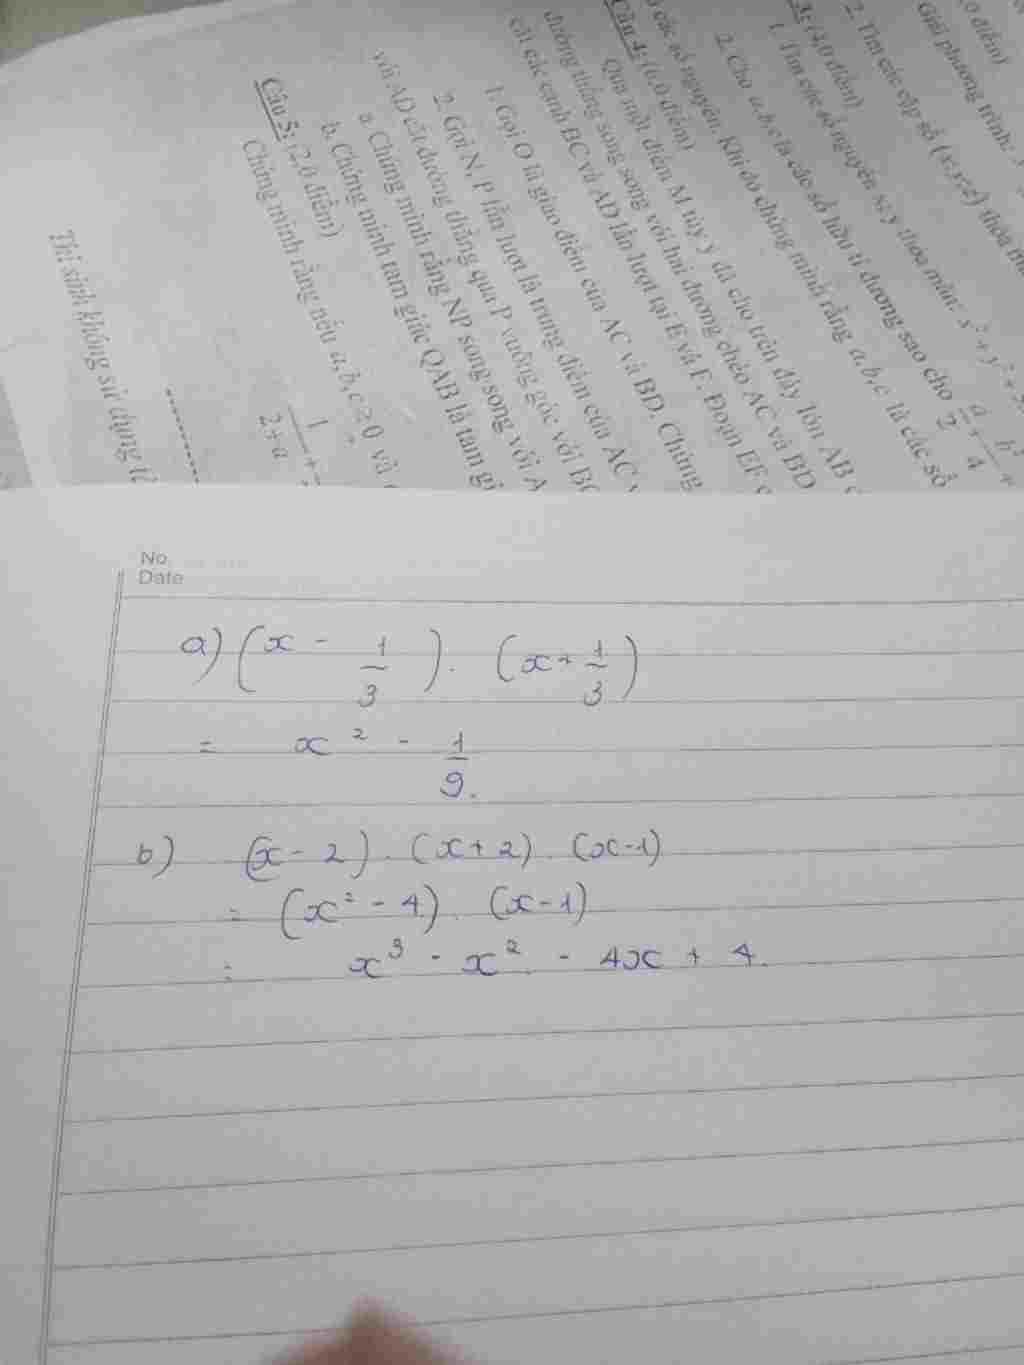 0 điểm)
Giải phương trình:
2. Tìm các cặp số (x;y;z) thỏa
3: (4,0 điểm)
1. Tìm các số nguyên x; y thỏa mãn: x² + y² +
2. Cho a,b,c là các số hữu tỉ dương sao cho a/2 +
các số nguyên. Khi đó chứng minh rằng a,b,c là các số
Câu 4: (6,0 điểm)
Qua một điểm M tùy ý đã cho trên đáy lớn AB
đường thẳng song song với hai đường chéo AC và BD
cắt các cạnh BC và AD lần lượt tại E và F. Đoạn EF
1. Gọi O là giao điểm của AC và BD. Chứng
2. Gọi N, P lần lượt là trung điểm của AC
với AD cắt đường thẳng qua P vuông góc với BC
a. Chứng minh rằng NP song song với A
b. Chứng minh tam giác QAB là tam gi
Câu 5: (2,0 điểm)
Chứng minh rằng nếu a,b,c ≥ 0 và
1/(2+a) +
Thí sinh không sử dụng
No.
Date
a) (x - 1/3) . (x + 1/3)
= x² - 1/9.
b) (x - 2) . (x + 2) . (x - 1)
= (x² - 4) . (x - 1)
= x³ - x² - 4x + 4.